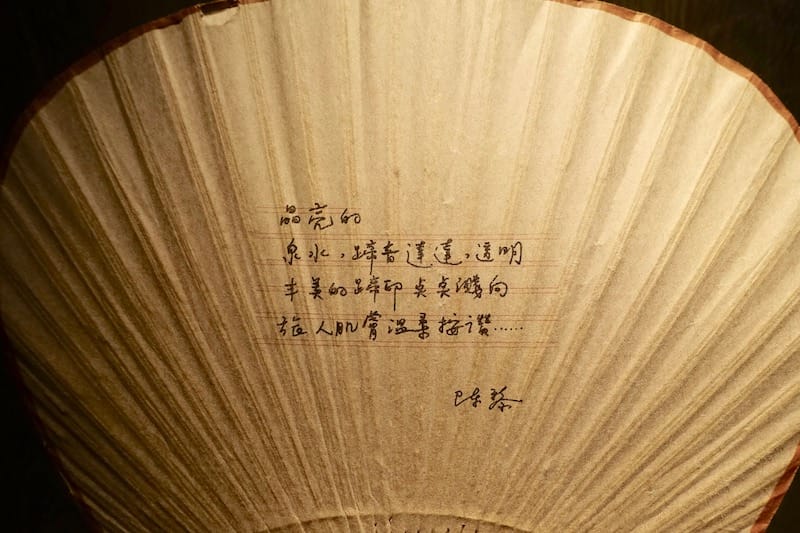 晶亮的
泉水,蹄音達達,透明
丰美的蹄印点点濺向
旅人肌膚溫柔按讚……
陳黎